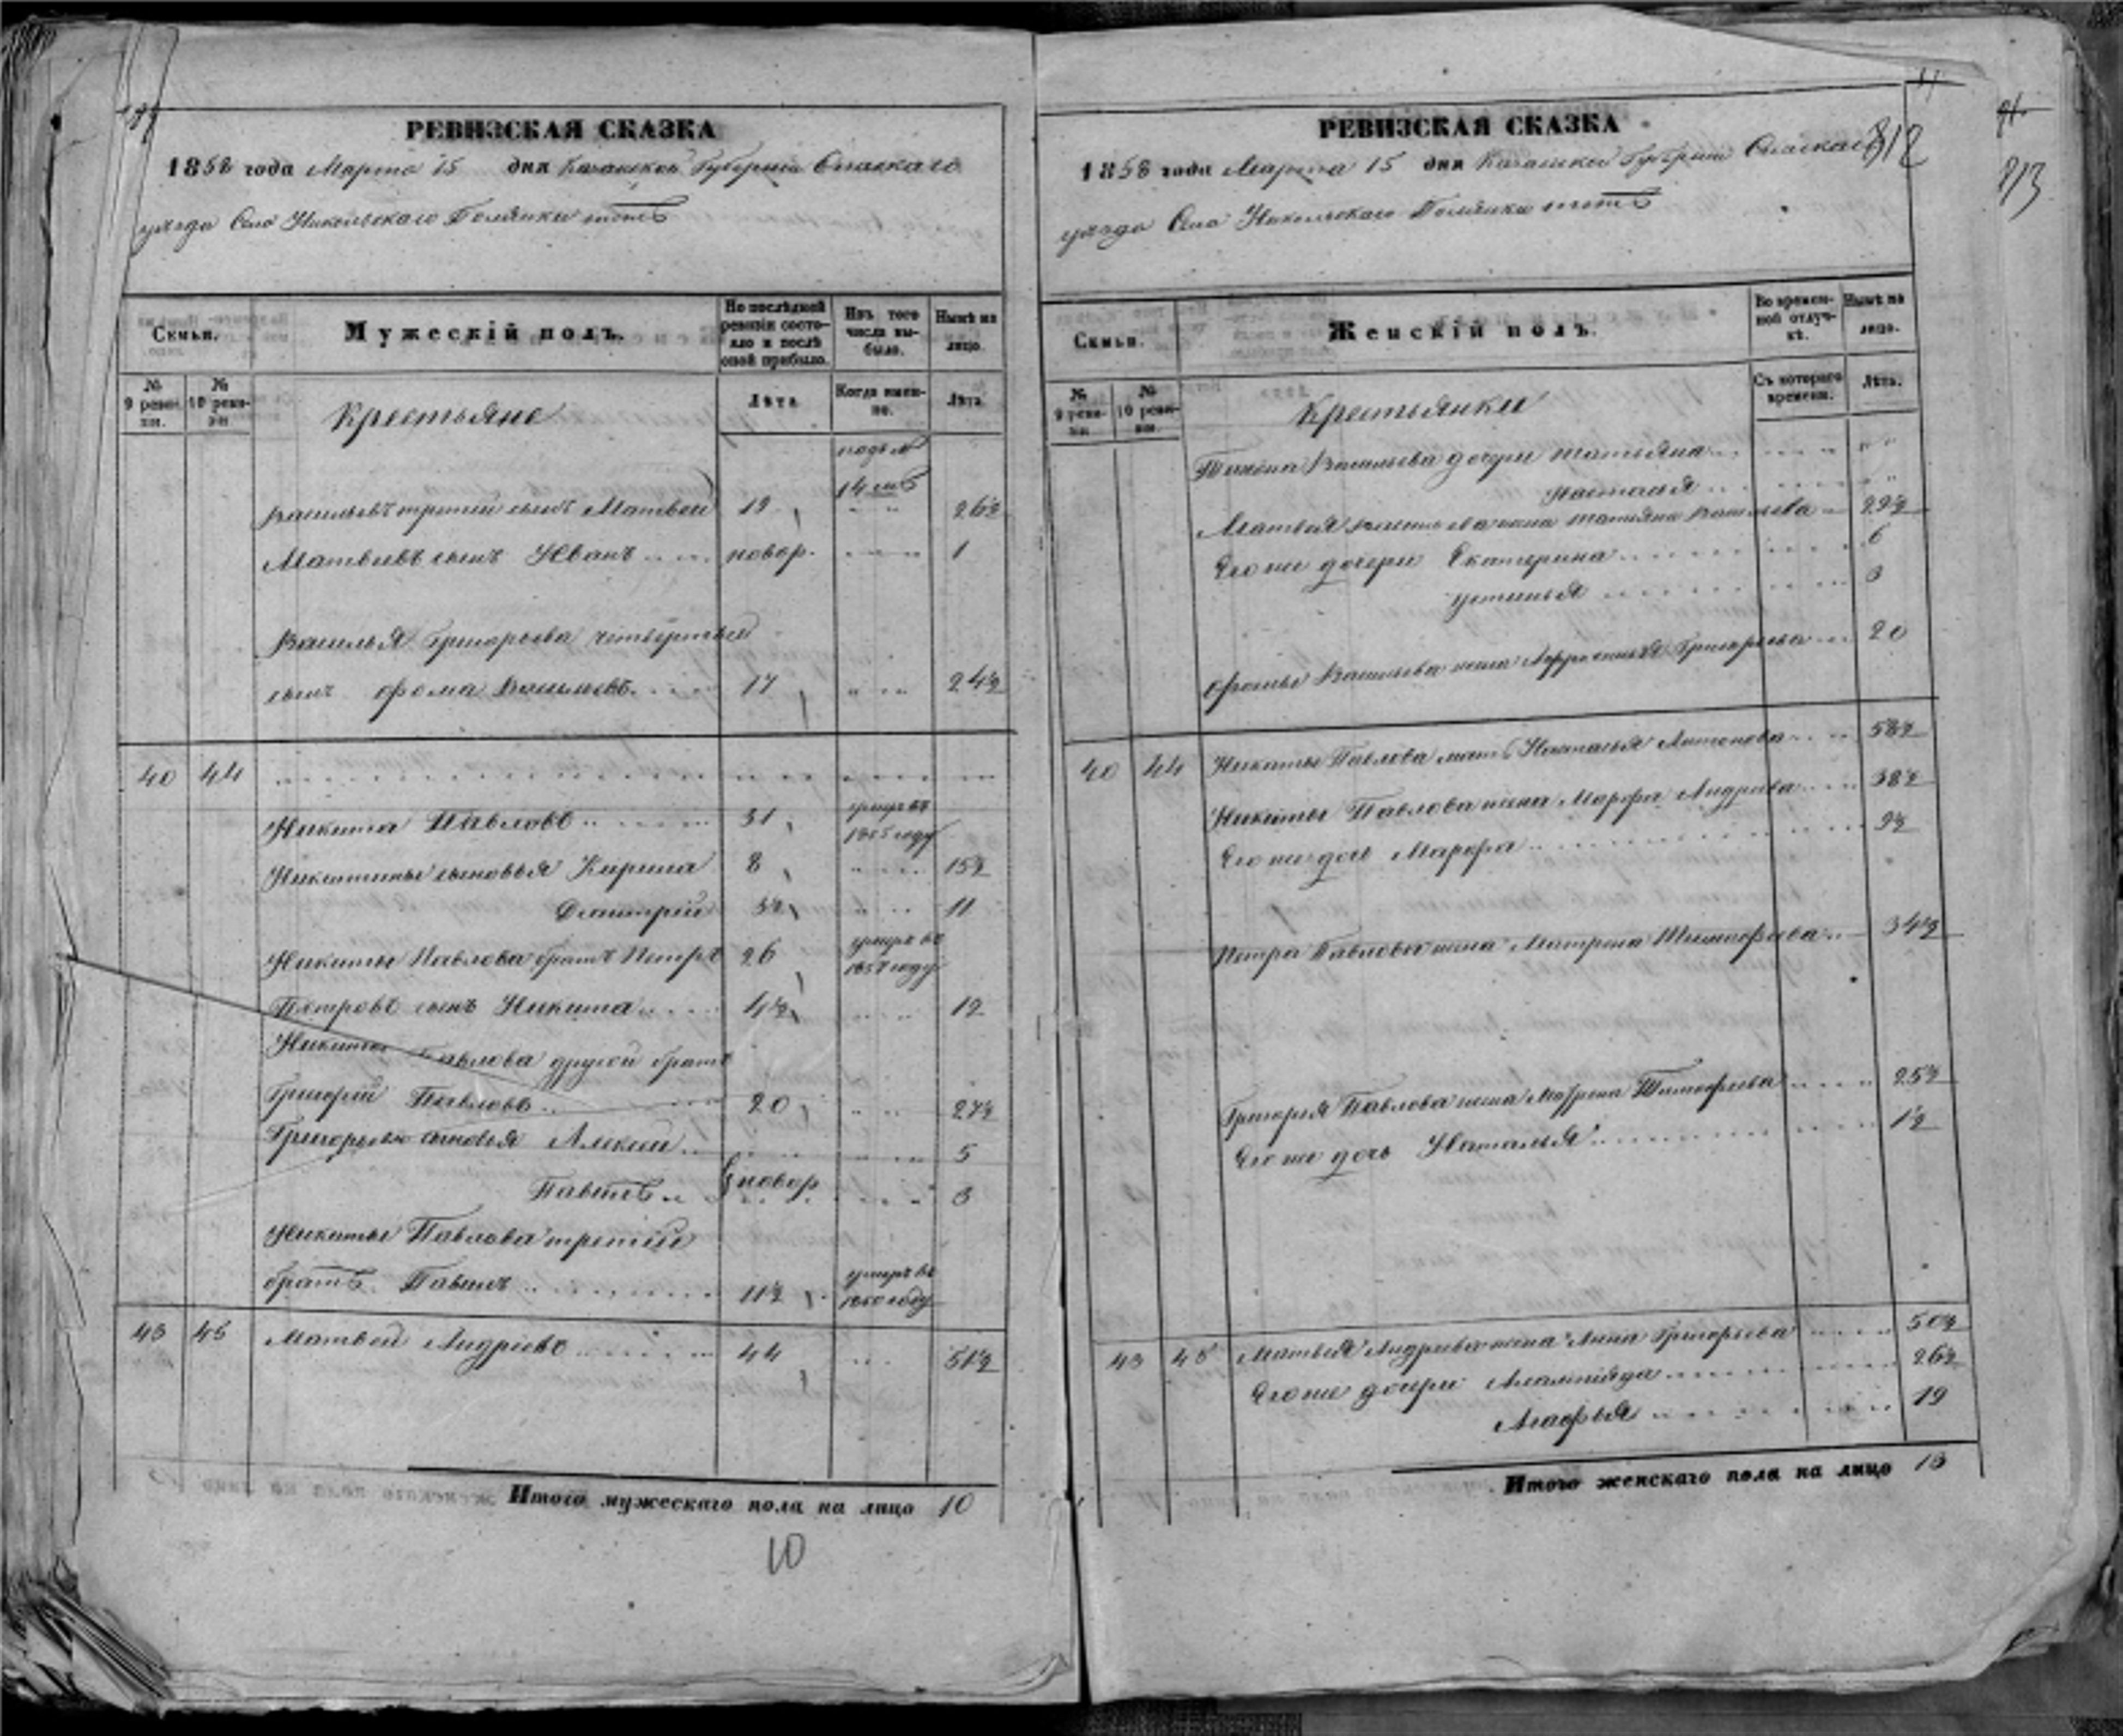 РЕВИЗСКАЯ СКАЗКА
1858 года Марта 15 дня Казанской Губернии Спаскаго
уезда Села Никольскаго Полянки тожъ
Семьи.
№ 9 ревизіи.
№ 10 ревизіи
Мужескій полъ.
По послѣдней ревизіи состояло и послѣ оной прибыло.
Изъ того числа выбыло.
Нынѣ на лицо.
Крестьяне
Лѣта
Когда именно.
Лѣта
14 лѣтъ
Васильевъ третий сынъ Матвей 19 26½
Матвеевъ сынъ Иванъ новор. 1
Василья Григорьева четвертый
сынъ Фома Васильевъ 17 24½
40 44
Никита Павловъ 31 умеръ въ 1855 году
Никитины сыновья Кирила 8 15½
Дмитрей 3½ 11
Никиты Павлова братъ Петръ 26 умеръ въ 1857 году
Петровъ сынъ Никита 4½ 12
Никиты Павлова другой братъ
Григорий Павловъ 20 27½
Григорьевы сыновья Алексей 5
Павелъ новор 3
Никиты Павлова третий
братъ Павелъ 11½ умеръ въ 1850 году
45 Матвей Андреевъ 44 51½
Итого мужескаго пола на лицо 10
10
РЕВИЗСКАЯ СКАЗКА
1858 года Марта 15 дня Казанской Губернии Спаскаго
уезда Села Никольскаго Полянки тожъ
812
813
Семьи.
№ 9 ревизіи
№ 10 ревизіи.
Женскій полъ.
Во временной отлучкѣ.
Нынѣ на лицо.
Крестьянки
Съ котораго времени.
Лѣта.
Васильева дочери Татьяна
Настасья
Матвея Васильева жена Татьяна Васильева 29½
Его же дочери Екатерина 6
Устинья 3
Фомы Васильева жена Григорьева 20
40 44 Никиты Павлова мать Настасья Антонова 58½
Никиты Павлова жена Марфа Андреева 38½
Его же дочь Марфа 9½
Петра Павлова жена Матрена Тимофеева 34½
Григорья Павлова жена Матрена Тимофеева 25½
Его же дочь Наталья 1½
45 Матвея Андреева жена Анна Григорьева 50½
Его же дочери 26½
Агафья 19
Итого женскаго пола на лицо 13